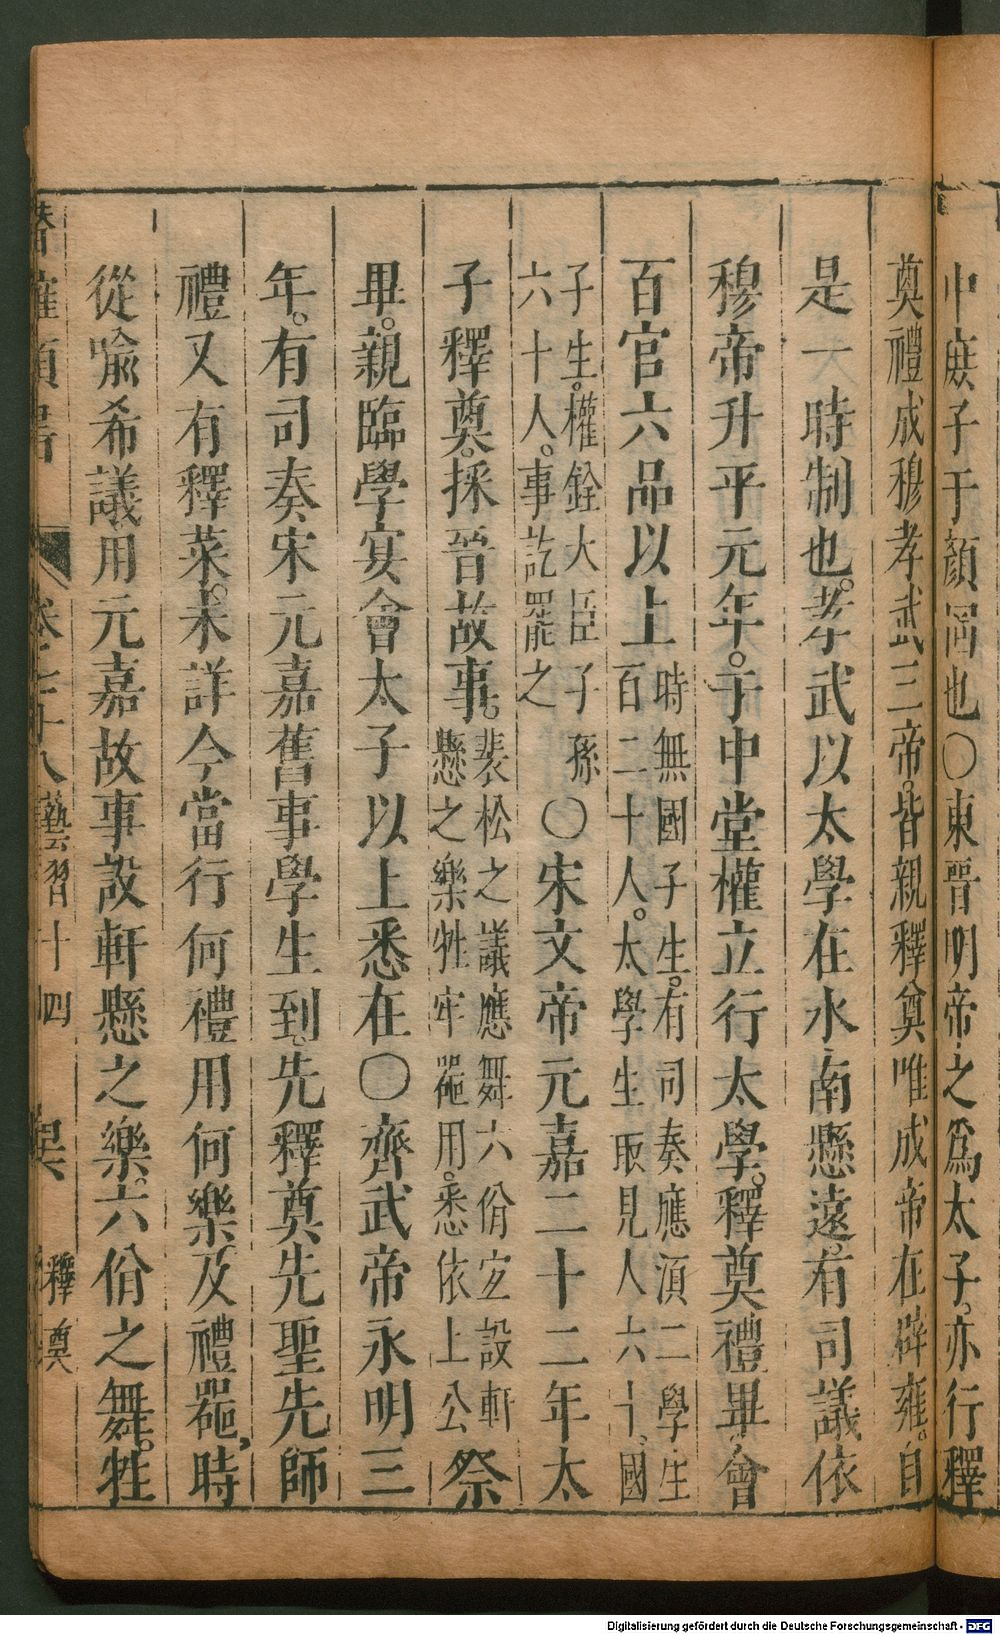 中庶子于顏回也〇東晉明帝之爲太子亦行釋
奠禮成穆孝武三帝皆親釋奠唯成帝在辟雍自
是一時制也孝武以太學在水南懸遠有司議依
穆帝升平元年于中堂權立行太學釋奠禮畢會
百官六品以上
時無國子生有司奏應須二學生
百二十人太學生取見人六十國
子生權銓大臣子孫
六十人事訖罷之
〇宋文帝元嘉二十二年太
子釋奠採晉故事
裴松之議應舞六佾宜設軒
懸之樂牲牢器用悉依上公
祭
畢親臨學宴會太子以上悉在〇齊武帝永明三
年有司奏宋元嘉舊事學生到先釋奠先聖先師
禮又有釋菜未詳今當行何禮用何樂及禮器時
從喻希議用元嘉故事設軒懸之樂六佾之舞牲
潛確類書 卷七十八 藝習十四 釋奠
Digitalisierung gefördert durch die Deutsche Forschungsgemeinschaft - DFG